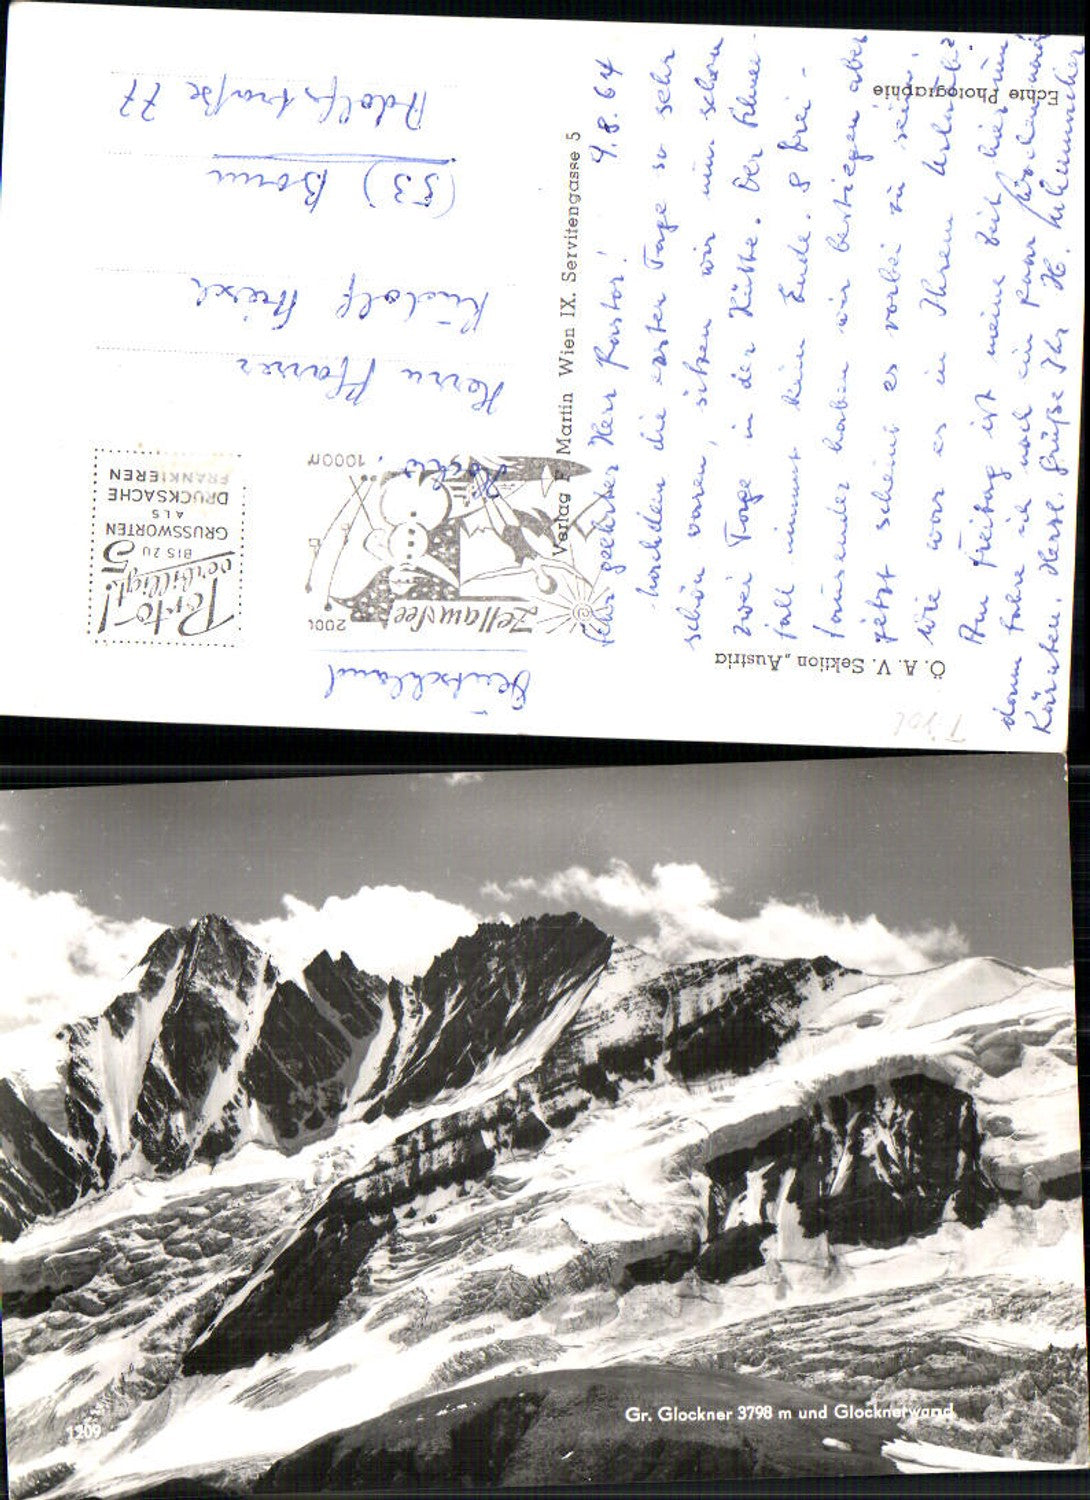 Sehr geehrter Herr Pastor! 4.8.64
Nachdem die ersten Tage so sehr
schön waren, sitzen wir nun schon
zwei Tage in der Hütte. Der Schnee-
fall nimmt kein Ende. 8 Drei-
tausender haben wir bestiegen aber
jetzt scheint es vorbei zu sein.
Wie war es in Ihrem Urlaub?
Am Freitag ist meine Zeit hier um
dann fahre ich noch ein paar Wochen nach
Kärnten. Herzl. Grüße Ihr H.
Echte Photographie
Ö. A. V. Sektion „Austria
Tirol
Verlag F. Martin Wien IX. Servitengasse 5
Zell am See
2000
1000m
Porto-!
verbilligt!
BIS ZU 5
GRUSSWORTEN
ALS
DRUCKSACHE
FRANKIEREN
Herrn Pfarrer
Rudolf
(53) Bonn
Adolfstraße 77
Deutschland
1209
Gr. Glockner 3798 m und Glocknerwand